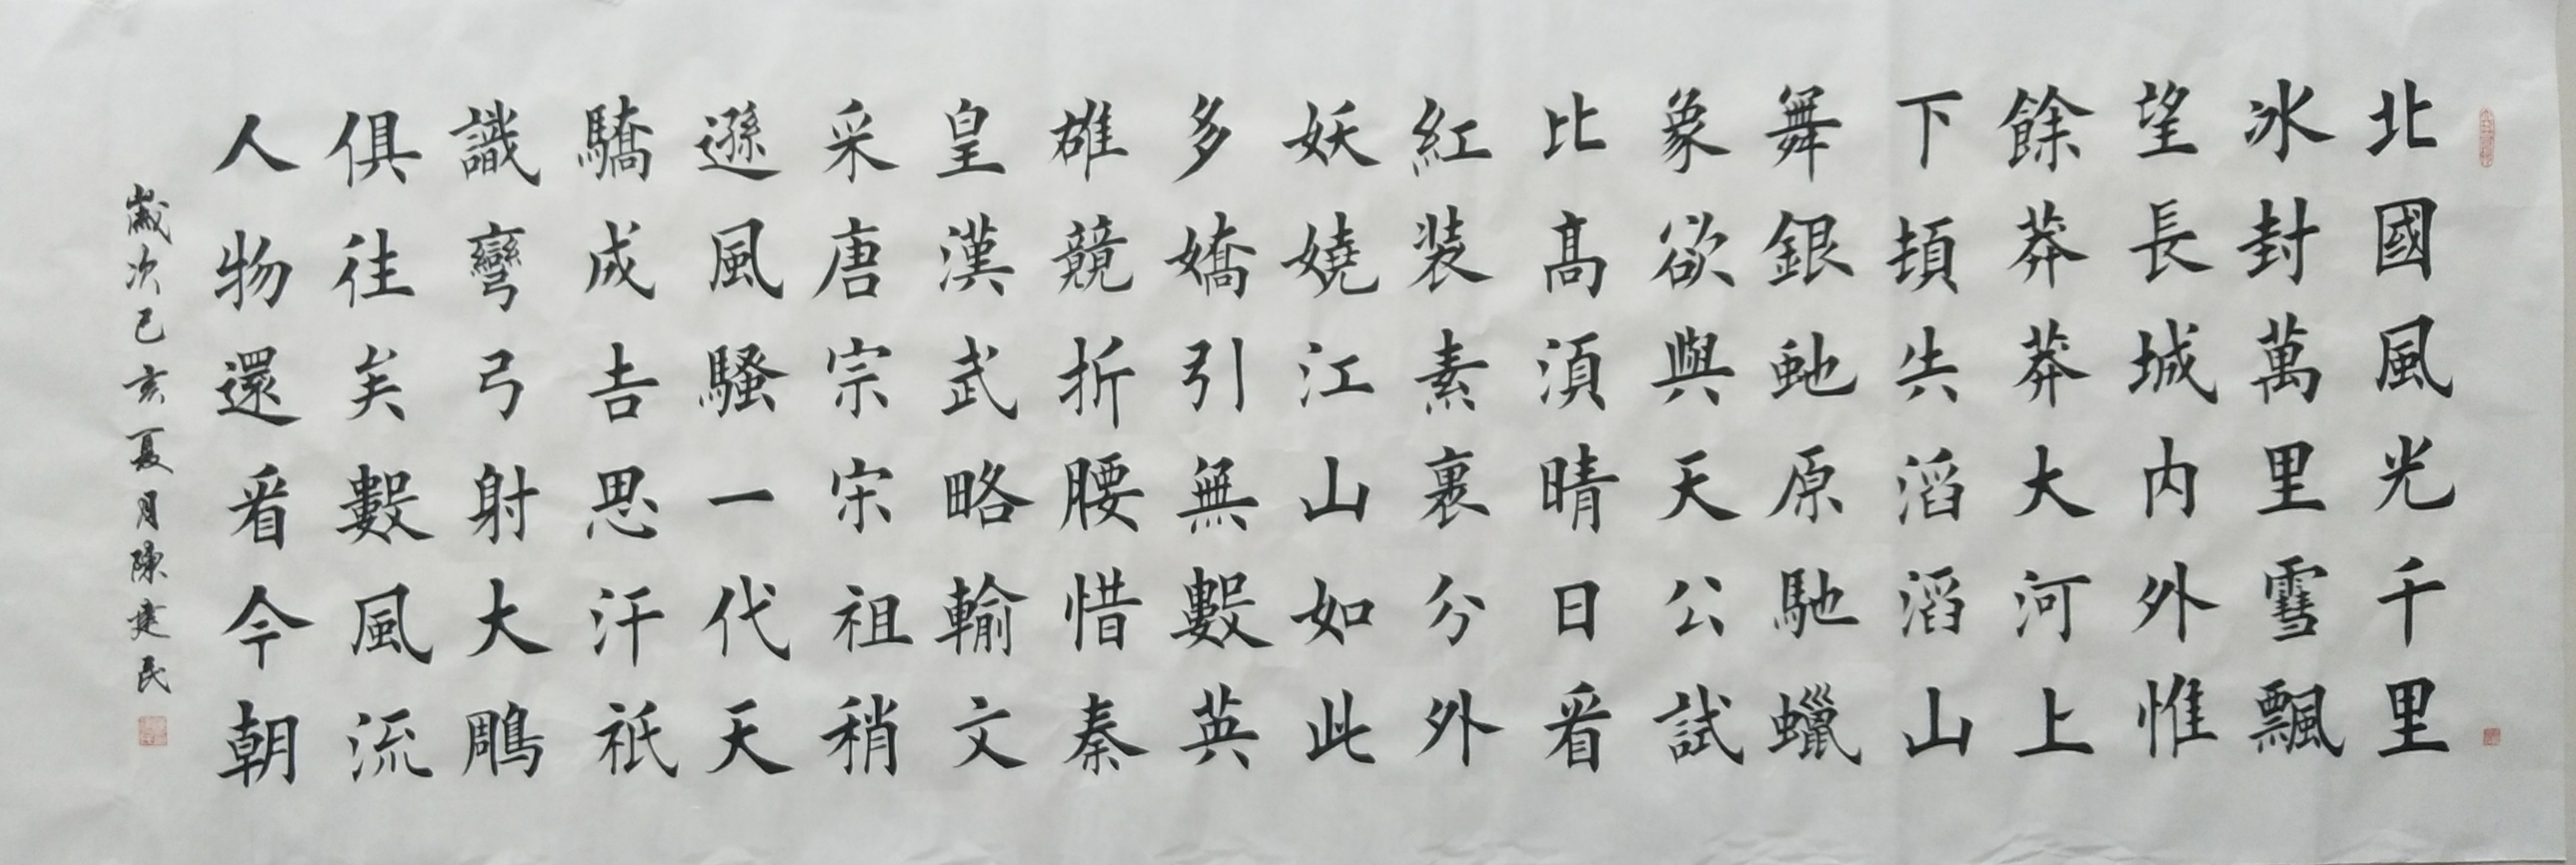 北國風光千里
冰封萬里雪飄
望長城内外惟
餘莽莽大河上
下頓失滔滔山
舞銀虵原馳蠟
象欲與天公試
比高湏晴日看
紅装素裹分外
妖嬈江山如此
多嬌引無數英
雄競折腰惜秦
皇漢武略輸文
采唐宗宋祖稍
遜風騷一代天
驕成吉思汗祇
識彎弓射大鵰
俱往矣數風流
人物還看今朝
歲次己亥夏月陳建民